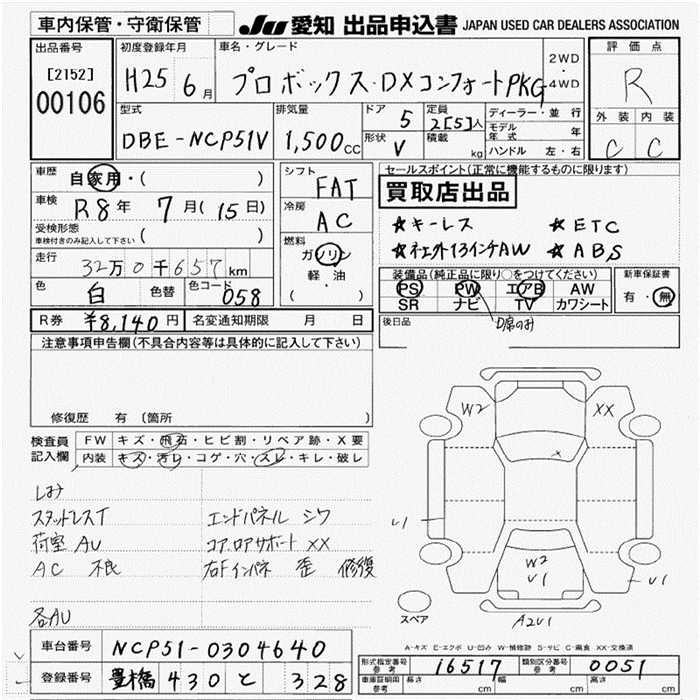 車内保管・守衛保管
JU 愛知 出品申込書 JAPAN USED CAR DEALERS ASSOCIATION
出品番号
[2152]
00106
初度登録年月
H25 6月
車名・グレード
プロボックス・DXコンフォートPKG
2WD
・
4WD
評価点
R
外装 内装
C C
型式
DBE-NCP51V
排気量
1,500CC
ドア
5
形状
V
定員
2[5]人
積載
kg
ディーラー・並行
モデル年式 年
ハンドル 左・右
車歴
自家用・( )
車検
R8年 7月(15日)
受検形態
車検付きのみ記入して下さい ( )
走行
32万0千657km
色
白
色替
色コード
058
シフト
FAT
冷房
AC
燃料
ガソリン
軽油
( )
セールスポイント(正常に機能するものに限ります)
買取店出品
☆キーレス ☆ETC
☆社外13インチAW ☆ABS
装備品(純正品に限り○をつけてください)
PS PW エアB AW
SR ナビ TV カワシート
D席のみ
新車保証書
有・無
後日品
R券 ¥8,140円 名変通知期限 月 日
注意事項申告欄(不具合内容等は具体的に記入して下さい)
修復歴 有(箇所 )
検査員
記入欄
FW キズ・飛石・ヒビ割・リペア跡・X要
内装 キズ・汚レ・コゲ・穴・スレ・キレ・破レ
しみ
スタッドレスT エンドパネル シワ
荷室AU コア.ロアサポート XX
AC 不良 右Fインパネ 歪 修復
各AU
W2 XX
×
U1
W2
U1
U1
スペア
A2U1
A-キズ E-エクボ U-凹み W-補修跡 S-サビ C-腐食 XX-交換済
車台番号 NCP51-0304640
登録番号 豊橋 430 と 328
形式指定番号 参考 16517 類別区分番号 参考 0051
車庫証明用 参考 長さ cm 幅 cm 高さ cm